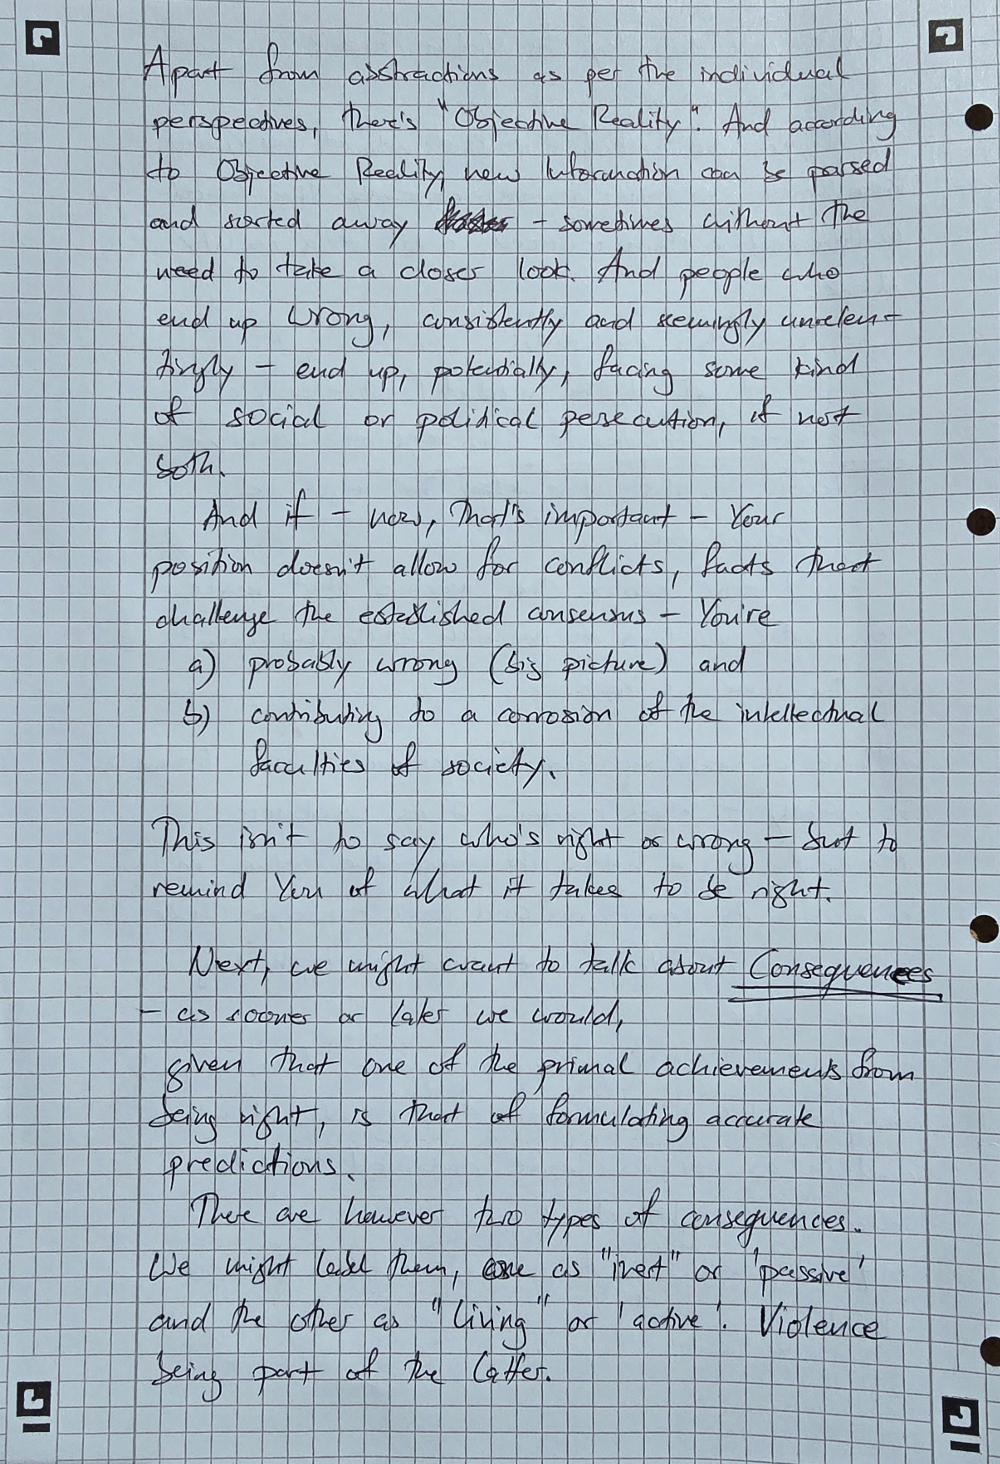 Apart from abstractions as per the individual
perspectives, there's "Objective Reality". And according
to Objective Reality, new Information can be parsed
and sorted away - sometimes without the
need to take a closer look. And people who
end up wrong, consistently and seemingly unrelen-
tingly - end up, potentially, facing some kind
of social or political persecution, if not
both.
And if - now, that's important - Your
position doesn't allow for conflicts, facts that
challenge the established consensus - You're
a) probably wrong (big picture) and
b) contributing to a corrosion of the intellectual
faculties of society.
This isn't to say who's right or wrong - but to
remind You of what it takes to be right.
Next, we might want to talk about Consequences
- as sooner or later we would,
given that one of the primal achievements from
being right, is that of formulating accurate
predictions.
There are however two types of consequences.
We might label them, one as "inert" or 'passive'
and the other as "living" or 'active'. Violence
being part of the latter.